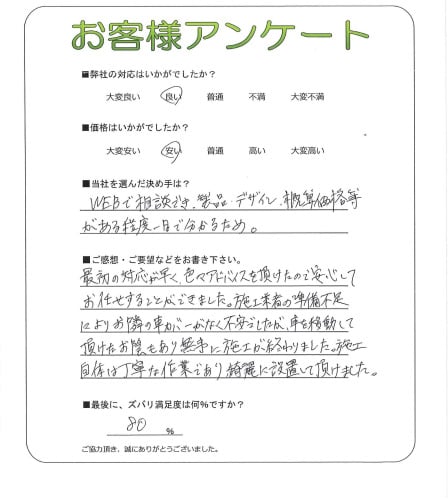 お客様アンケート
■弊社の対応はいかがでしたか？
大変良い 良い 普通 不満 大変不満
■価格はいかがでしたか？
大変安い 安い 普通 高い 大変高い
■当社を選んだ決め手は？
WEBで相談でき、製品・デザイン、概算価格等
がある程度一目で分かるため。
■ご感想・ご要望などをお書き下さい。
最初の対応が早く、色々アドバイスを頂けたので安心して
お任せすることができました。施工業者の準備不足
によりお隣の車カバーがなく不安でしたが、車を移動して
頂けたお蔭もあり無事に施工が終わりました。施工
自体は丁寧な作業であり綺麗に設置して頂けました。
■最後に、ズバリ満足度は何％ですか？
80 %
ご協力頂き、誠にありがとうございました。